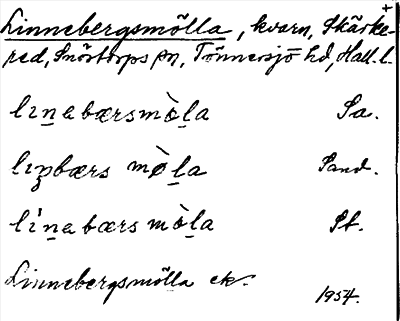 +
Linnebergsmölla, kvarn, Skärke-
red, Snöstorps sn, Tönnersjö hd, Hall. l.
lɪn̠abærsmò̱l̠a Sa.
lɪn̠bærs mø̀l̠a Sand.
lɪ́n̠abærs mò̱l̠a St.
Linnebergsmölla ek.
1954.